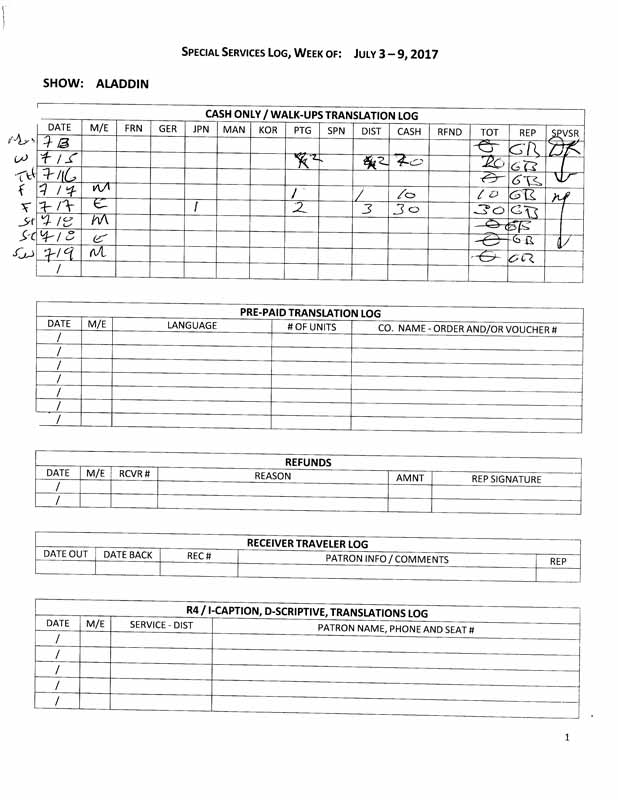 SPECIAL SERVICES LOG, WEEK OF: JULY 3 – 9, 2017
SHOW: ALADDIN
CASH ONLY / WALK-UPS TRANSLATION LOG
DATE M/E FRN GER JPN MAN KOR PTG SPN DIST CASH RFND TOT REP SPVSR
7 / 3 0 GB DK
W 7/5 2 2 20 20 GB
TH 7/6 0 GB
F 7/7 M 1 1 10 10 GB
F 7/7 E 1 2 3 30 30 GB
7/8 M 0 GB
7/8 E 0 GB
7/9 M 0 GB
/
PRE-PAID TRANSLATION LOG
DATE M/E LANGUAGE # OF UNITS CO. NAME - ORDER AND/OR VOUCHER #
/
/
/
/
/
/
/
REFUNDS
DATE M/E RCVR # REASON AMNT REP SIGNATURE
/
/
RECEIVER TRAVELER LOG
DATE OUT DATE BACK REC # PATRON INFO / COMMENTS REP
R4 / I-CAPTION, D-SCRIPTIVE, TRANSLATIONS LOG
DATE M/E SERVICE - DIST PATRON NAME, PHONE AND SEAT #
/
/
/
/
/
1